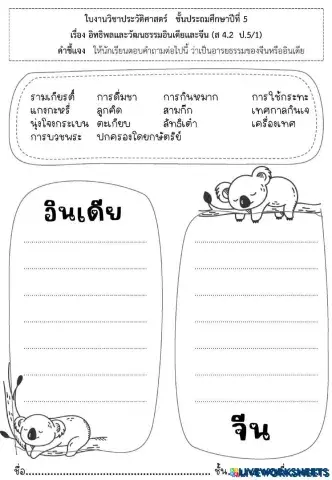 ใบงานวิชาประวัติศาสตร์ ชั้นประถมศึกษาปีที่ 5
เรื่อง อิทธิพลและวัฒนธรรมอินเดียและจีน (ส 4.2 ป.5/1)
คำชี้แจง ให้นักเรียนตอบคำถามต่อไปนี้ ว่าเป็นอารยธรรมของจีนหรืออินเดีย
รามเกียรติ์ การดื่มชา การกินหมาก การใช้กระทะ
แกงกะหรี่ ลูกคิด สามก๊ก เทศกาลกินเจ
นุ่งโจงกระเบน ตะเกียบ ลัทธิเต๋า เครื่องเทศ
การบวชพระ ปกครองโดยกษัตริย์
อินเดีย
จีน
ชื่อ.................................................. ชั้น
LIVEWORKSHEETS